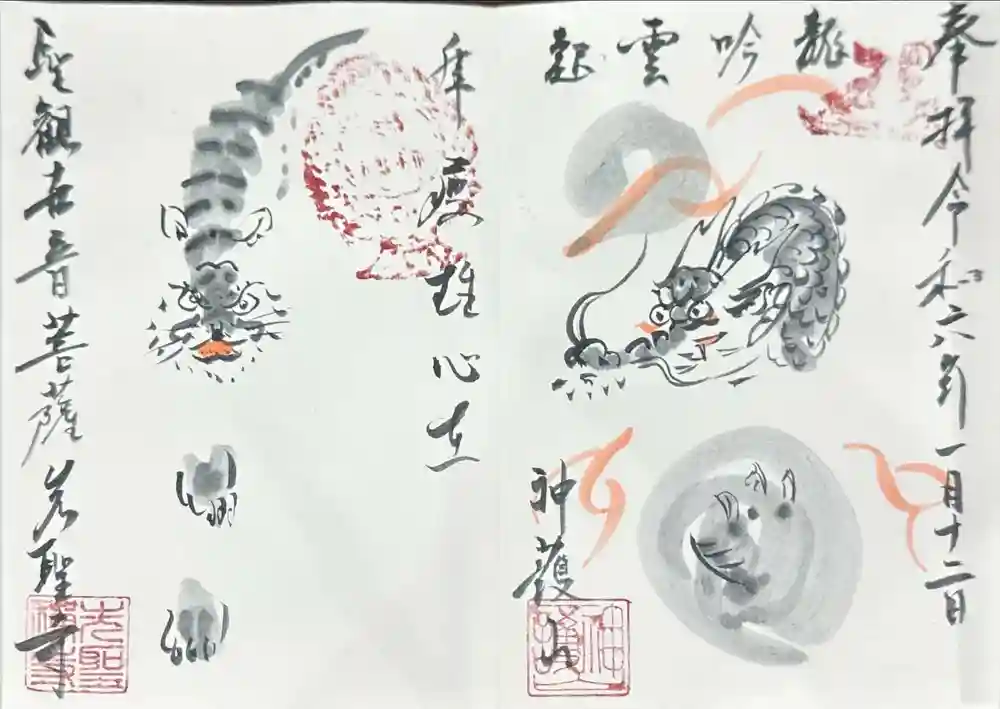 奉拝 令和六年一月十二日
龍吟雲起
神護山
年痩雄心在
聖観世音菩薩
光聖寺